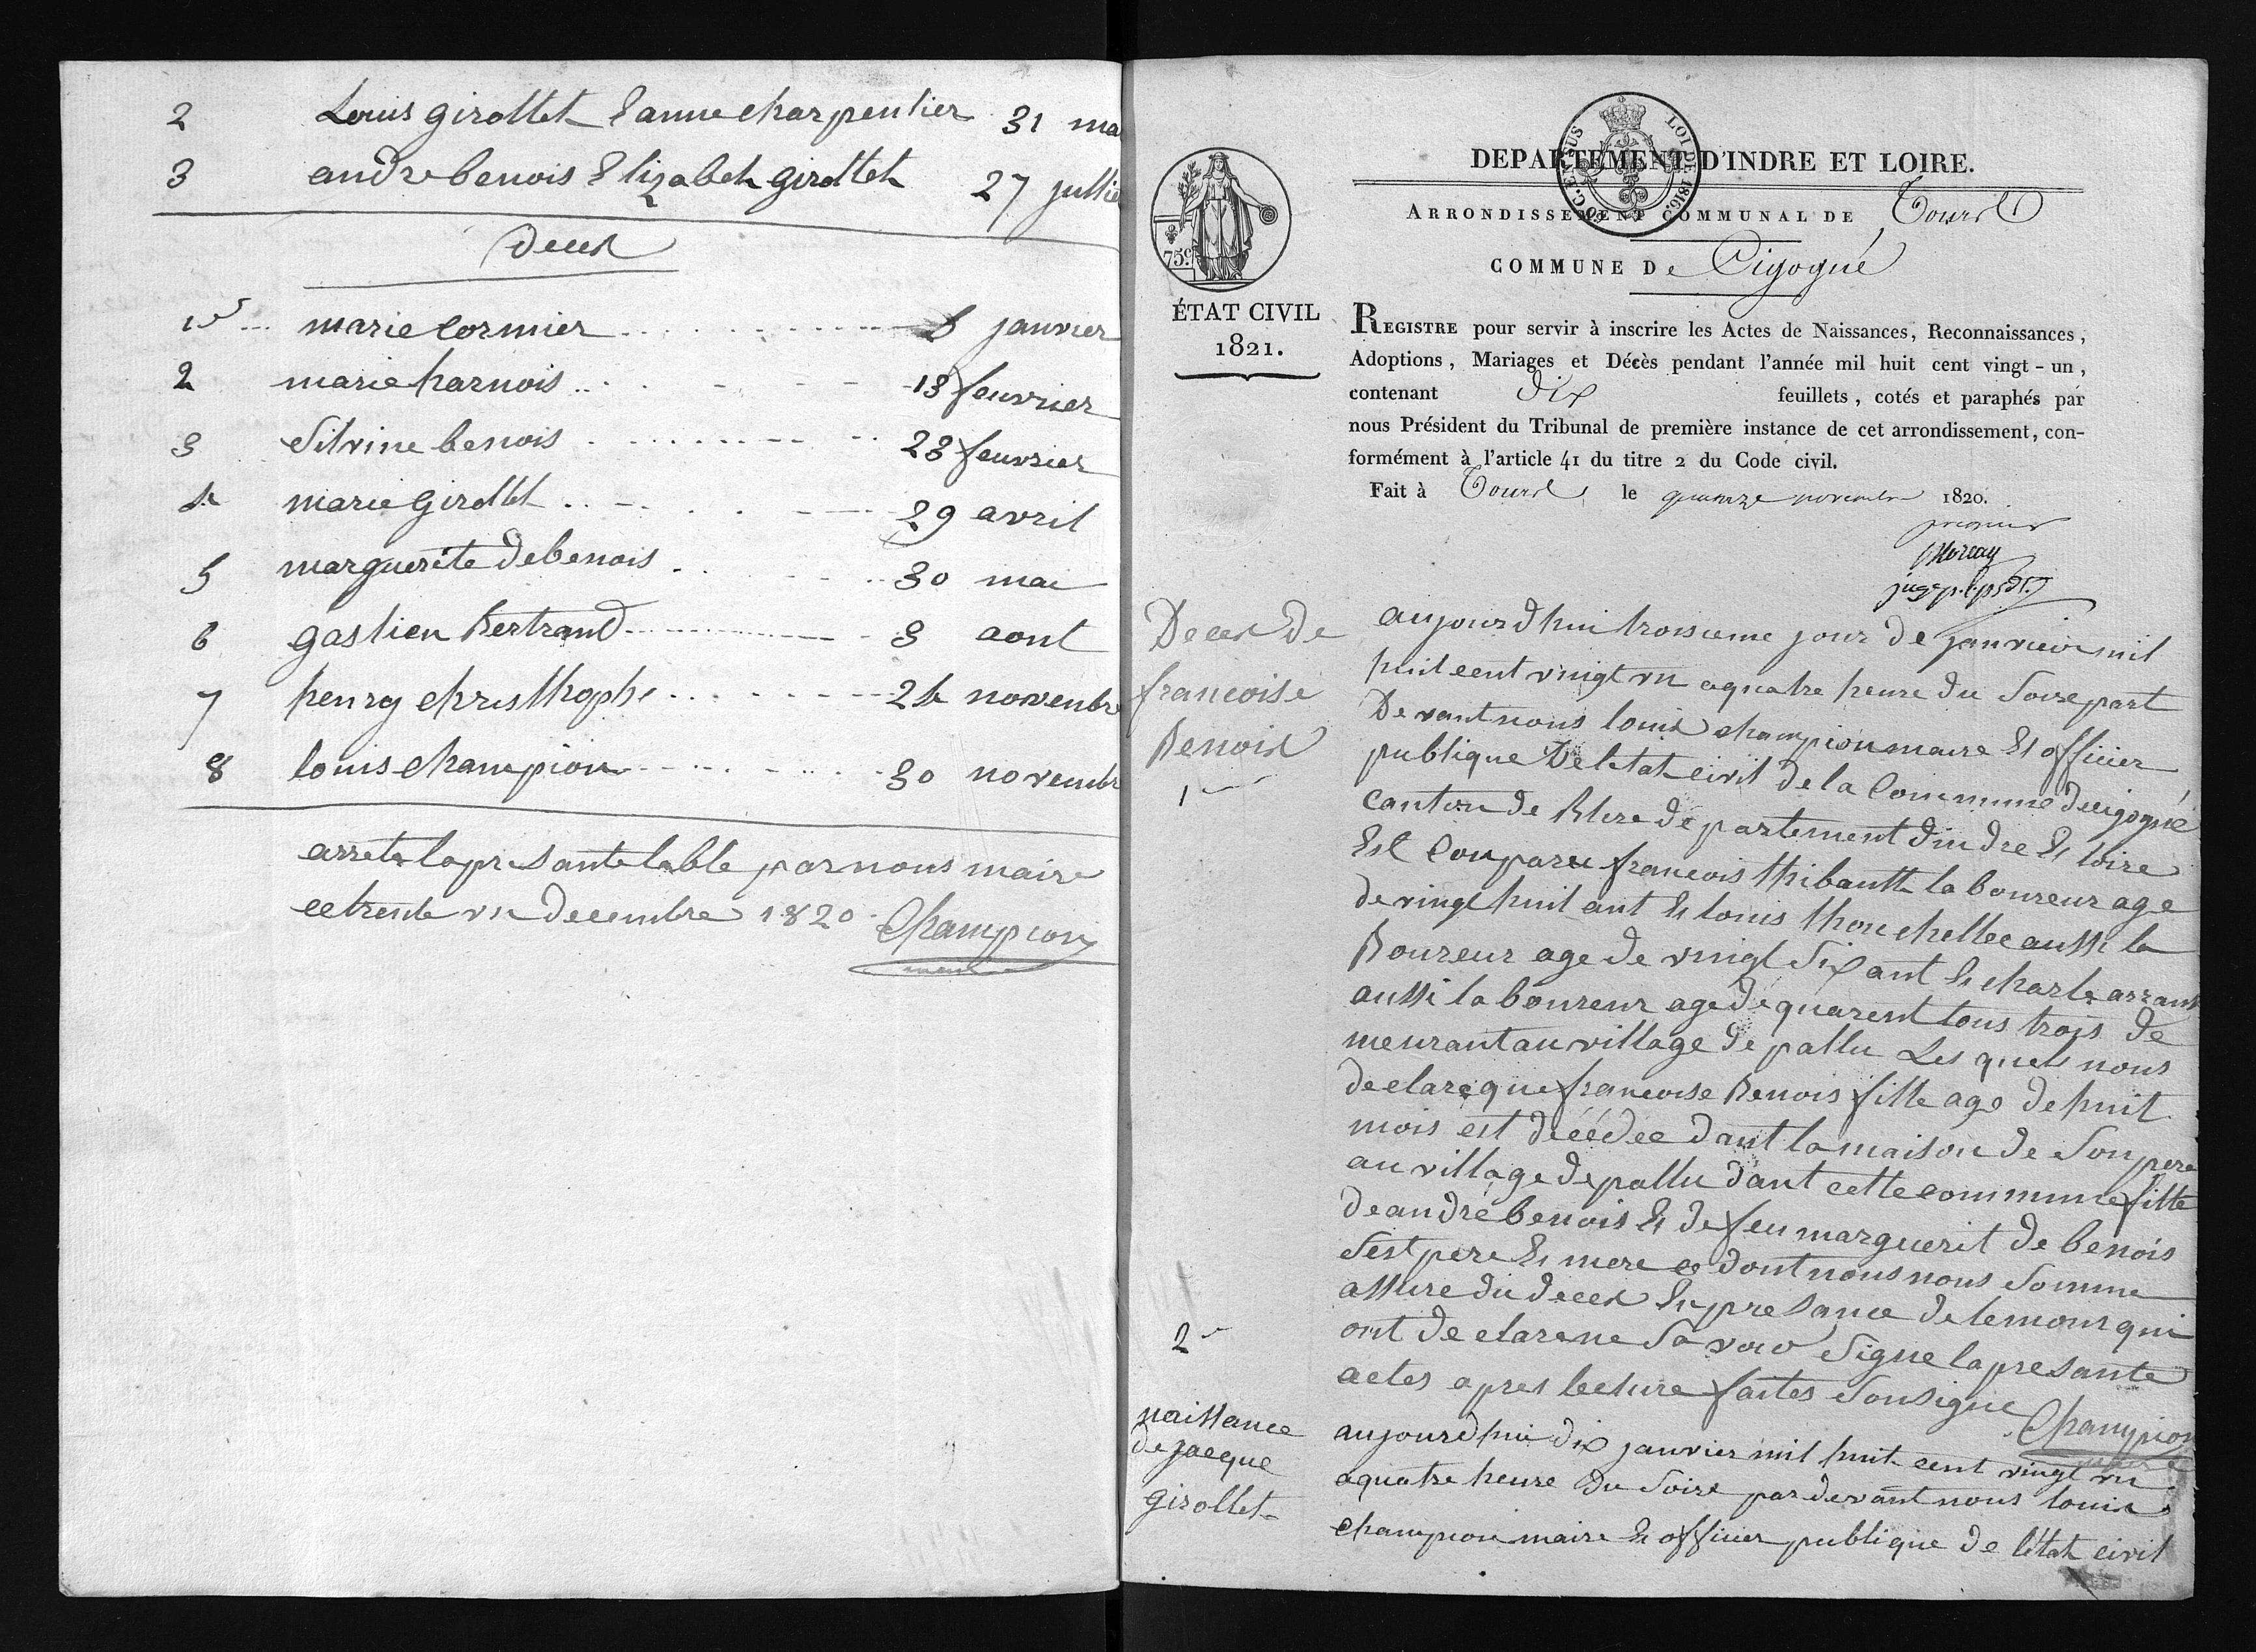 2 Louis girollet & anne charpentier 31 ma
3 andre benois Elizabeh girollet 27 jullie
Deces
1er marie Cormier 5 janvier
2 marie harnois 13 feuvrier
3 Silvine benois 23 feuvrier
4 marie girollet 29 avril
5 marguerite debenois 30 mai
6 gastien Bertrand 3 aout
7 henry christhophe 24 novenbre
8 louis champion 30 novembr
arreté la presante table par nous maire
ce trente un decembre 1820 Champion
maire
DEPARTEMENT D'INDRE ET LOIRE.
LOI DE 1816.
75c.
ARRONDISSEMENT COMMUNAL DE Tours
COMMUNE De Cigogné
ÉTAT CIVIL
1821.
REGISTRE pour servir à inscrire les Actes de Naissances, Reconnaissances,
Adoptions, Mariages et Décès pendant l'année mil huit cent vingt-un,
contenant Dix feuillets, cotés et paraphés par
nous Président du Tribunal de première instance de cet arrondissement, con-
formément à l'article 41 du titre 2 du Code civil.
Fait à Tours le quinze novembre 1820.
premier
Deces de
francoise
Benois
1er
aujourdhui troisieme jour de janvier mil
huit cent vingt un aquatre heure du Soire part
Devant nous louis champion maire Et officier
publique De letat civil de la Commune decigogné
canton de Blere departement dindre Et loire
Est Conparu francois thibault laboureur age
de vingt huit ant Et louis thouchellee aussi la
Boureur age de vingt Six ant Et charle arrault
aussi laboureur age de quarent tous trois de
meurant au village de pallu Les quels nous
declare que francoise Benois fille age de huit
mois est décédee dant la maison de Son pere
au village de pallu dant cette commune fille
de andré benois Et de feu marguerit de benois
Sest pere Et mere ce dont nous nous Somme
assure du deces En presance de temoins qui
ont declare ne Savoir Signe la presante
actes apres lecture faites Sousigne
Champion
2e
naissance
de jacque
girollet
aujourdhui dix janvier mil huit cent vingt un
aquatre heure du Soire pardevant nous louis
champion maire Et officier publique de létat civil